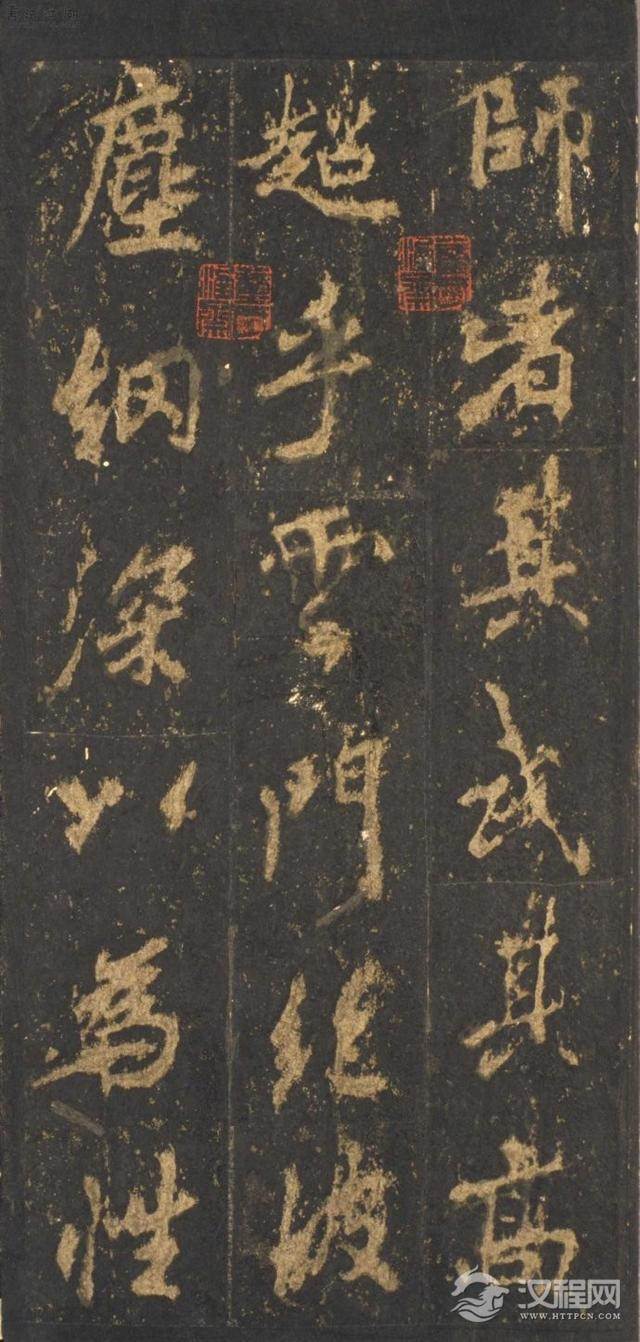 師者其或其高
超乎雲門絕彼
塵網深以為性
汉程网
WWW.HTTPCN.COM